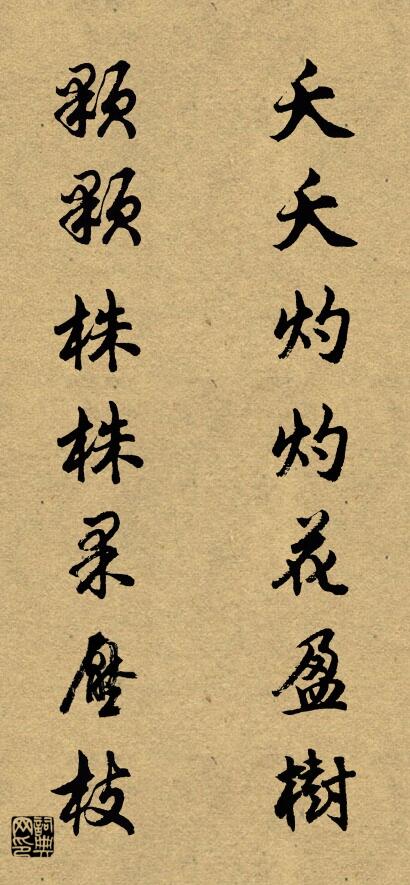 夭夭灼灼花盈樹
顆顆株株果壓枝
詞典網印